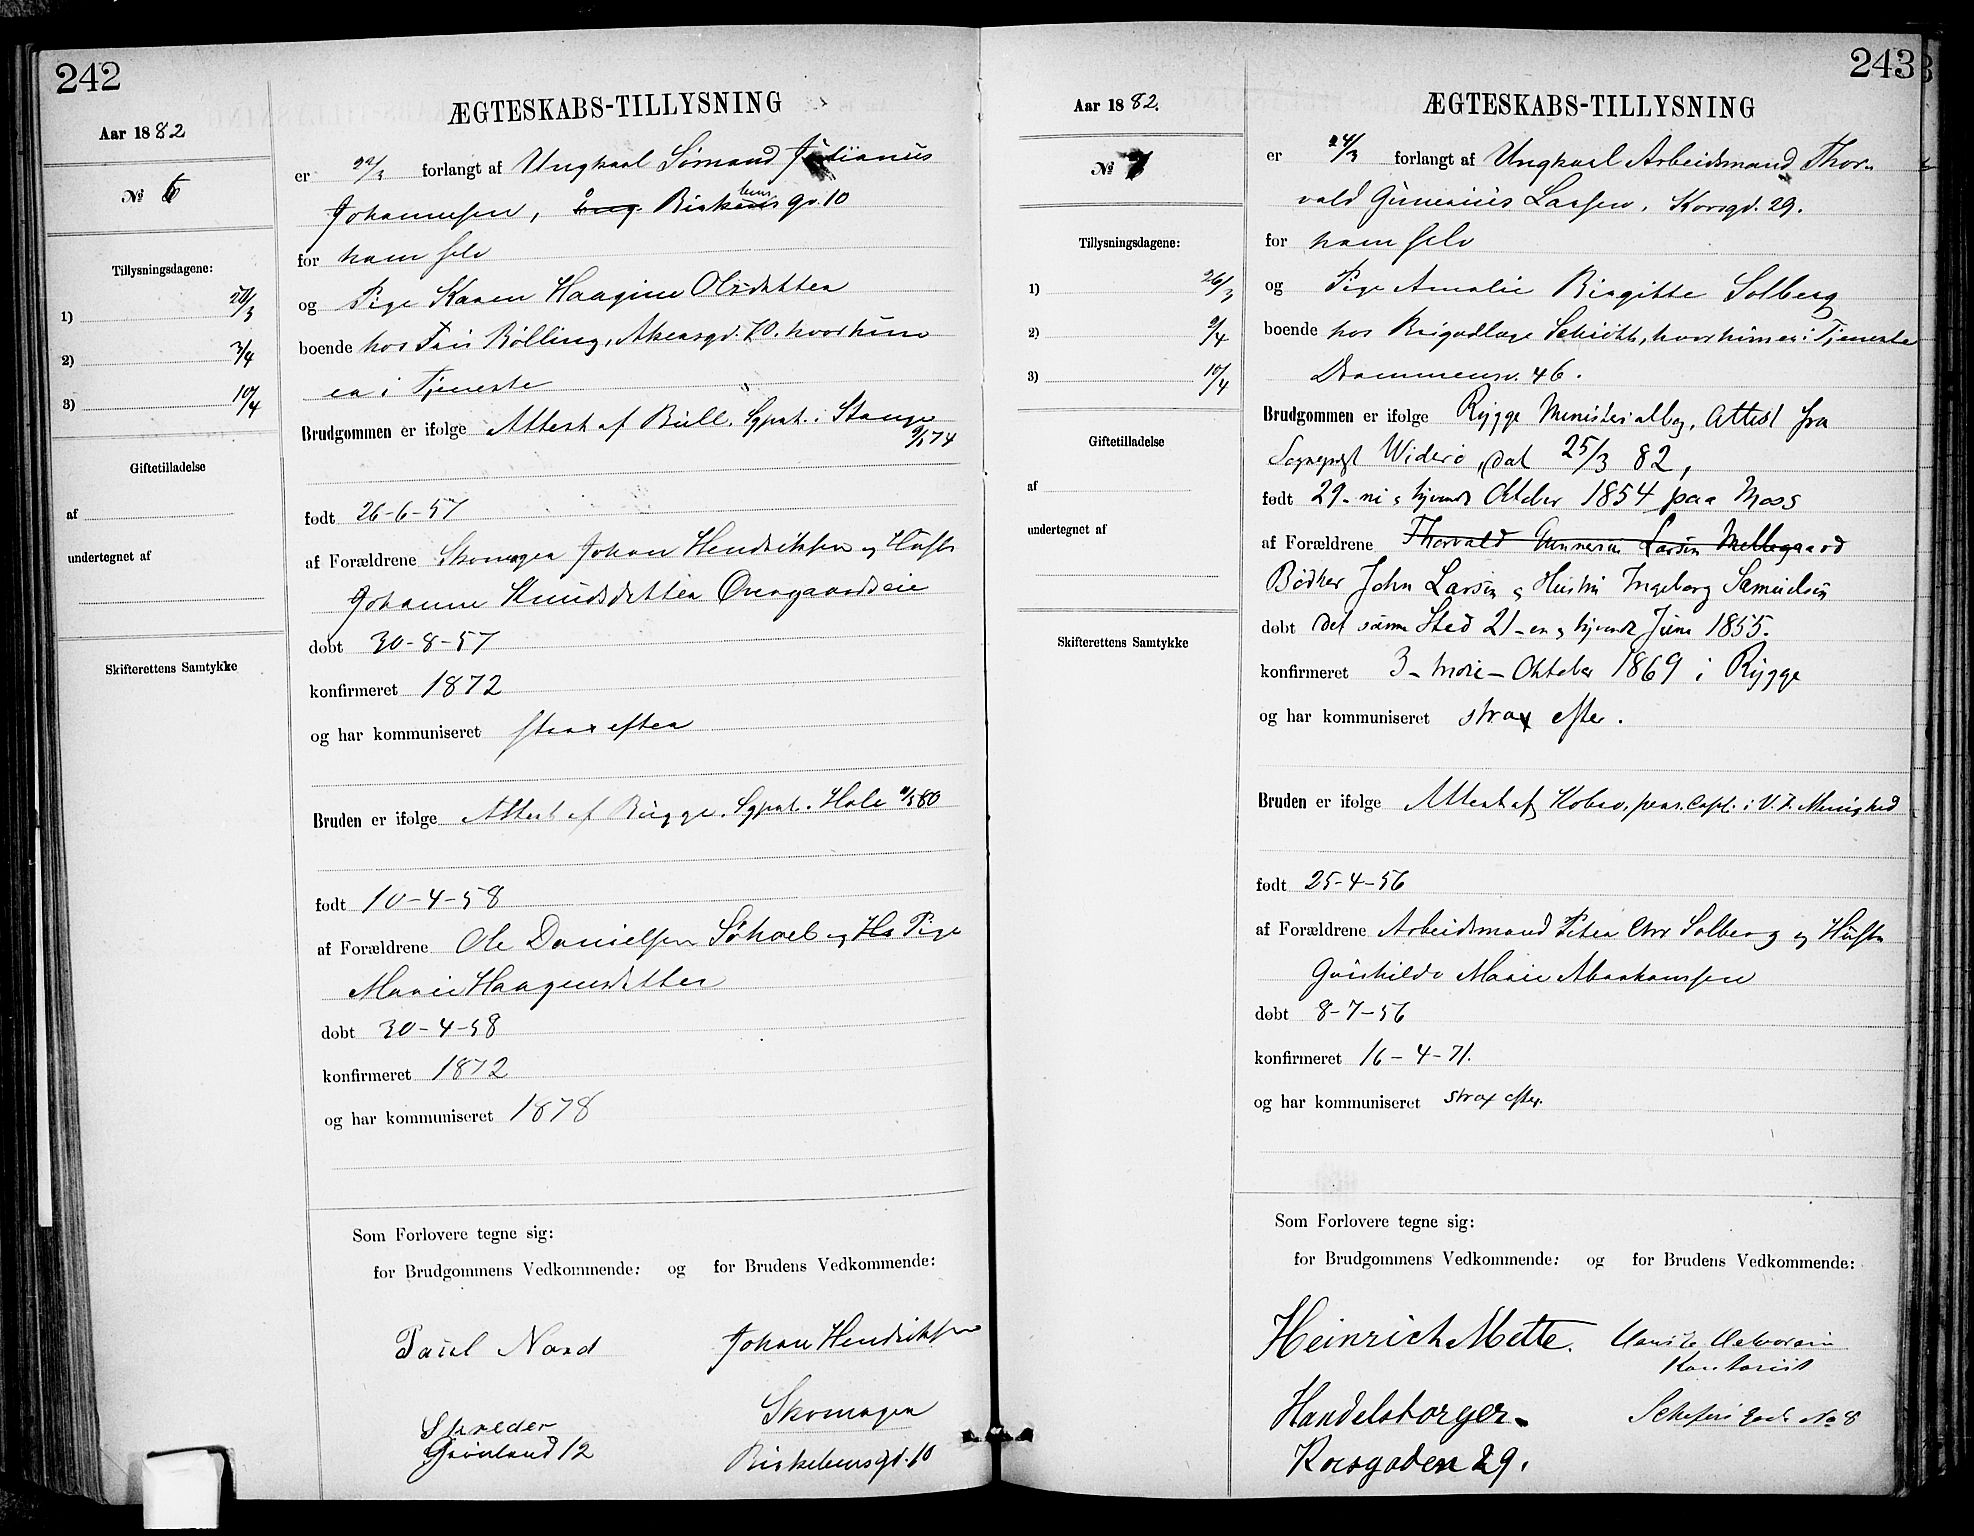 242
ÆGTESKABS-TILLYSNING
Aar 1882
№ 6
er 22/3 forlangt af Ungkarl Sømand Julianus
Johannesen, Birkebensgd. 10
for ham selv
og Pige Karen Haagine Olsdatter
boende hos Frü Bølling, Akersgd. 70. hvor hun
er i Tjeneste
Tillysningsdagene:
1)
2) 3/4
3) 10/4
Giftetilladelse
af
undertegnet af
Skifterettens Samtykke
Brudgommen er ifølge Attest af Bull. Sgprst. i Stange
74
født 26-6-57
af Forældrene Skomager Johan Hendriksen og Hustr
Johanne Knudsdatter Overgaardseie
døbt 30-8-57
konfirmeret 1872
og har kommuniseret strax efter
Bruden er ifølge Attest af Bugge. Sgprst. Hole 80
født 10-4-58
af Forældrene Ole Danielsen Søhoel og Hs Pige
Marie Haagensdatter
døbt 30-4-58
konfirmeret 1872
og har kommuniseret 1878
Som Forlovere tegne sig:
for Brudgommens Vedkommende: og for Brudens Vedkommende:
Paul Nord Johan Hendriksen
Skreder Skomager
Grønland 12 Birkebensgd. 10
243
ÆGTESKABS-TILLYSNING
Aar 1882.
№ 7
er 24/3 forlangt af Ungkarl Arbeidsmand Thor-
vald Gunerius Larsen, Korsgd. 29.
for ham selv
og Pige Amalie Birgitte Solberg
boende hos Brigadlæge Schiøtt, hvor hun er i Tjeneste
Drammensv. 46.
Tillysningsdagene:
1) 26/3
2) 2/4
3) 10/4
Giftetilladelse
af
undertegnet af
Skifterettens Samtykke
Brudgommen er ifølge Rygge Ministerialbog, Attest fra
Sognepræst Widerø, dat 25/3 82,
født 29-ni og tyvende Oktober 1854 paa Moss
af Forældrene Thorvald Gunnerius Larsen Mellegaard
Bødker John Larsen og Hustru Ingeborg Samuelsen
døbt det samme Sted 21-en og tyvende Juni 1855.
konfirmeret 3- tredie- Oktober 1869 i Rygge
og har kommuniseret strax efter.
Bruden er ifølge Attest af Kobro, pers. Capl. i V. F. Menighed
født 25-4-56
af Forældrene Arbeidsmand Peter Chr Solberg og Hustr
Gunhilde Marie Abrahamsen
døbt 8-7-56
konfirmeret 16-4-71.
og har kommuniseret strax efter.
Som Forlovere tegne sig:
for Brudgommens Vedkommende: og for Brudens Vedkommende:
Heinrich Mette.
Kontorist
Handelsborger.
No 8
Korsgaden 29.